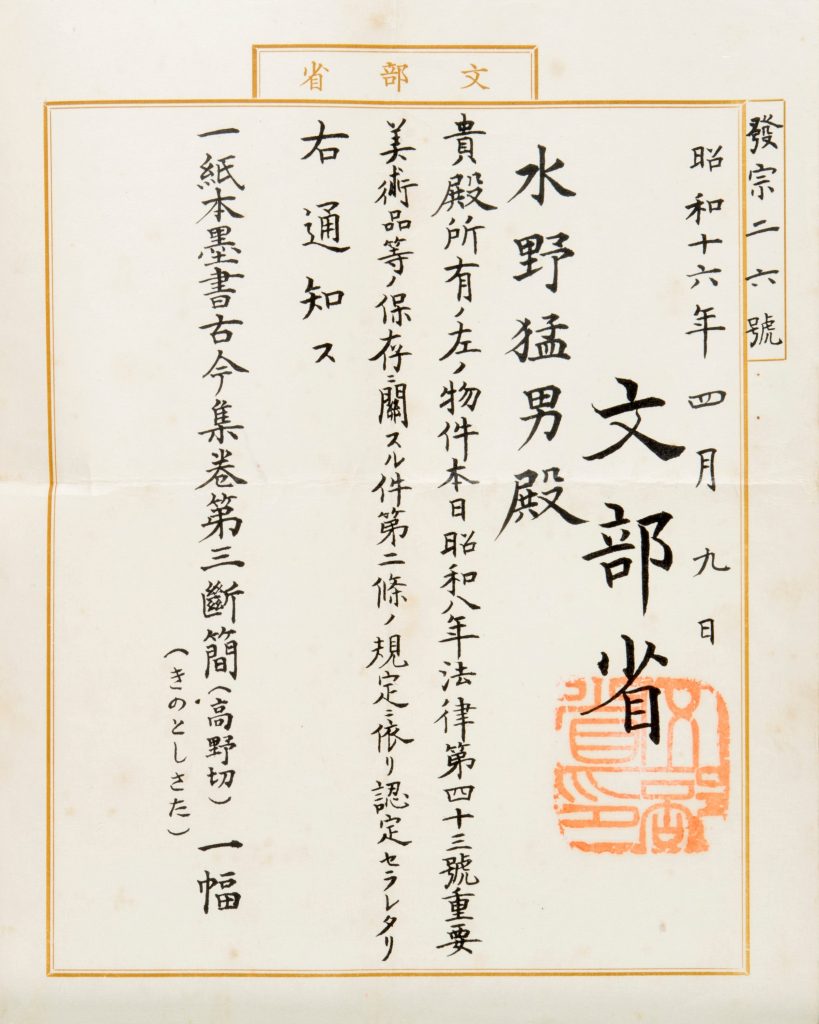 文部省
發宗二六號
昭和十六年四月九日
文部省
文部省印
水野猛男殿
貴殿所有ノ左ノ物件本日昭和八年法律第四十三號重要
美術品等ノ保存ニ關スル件第二條ノ規定ニ依リ認定セラレタリ
右通知ス
一紙本墨書古今集卷第三斷簡（高野切）一幅
（きのとしさた）